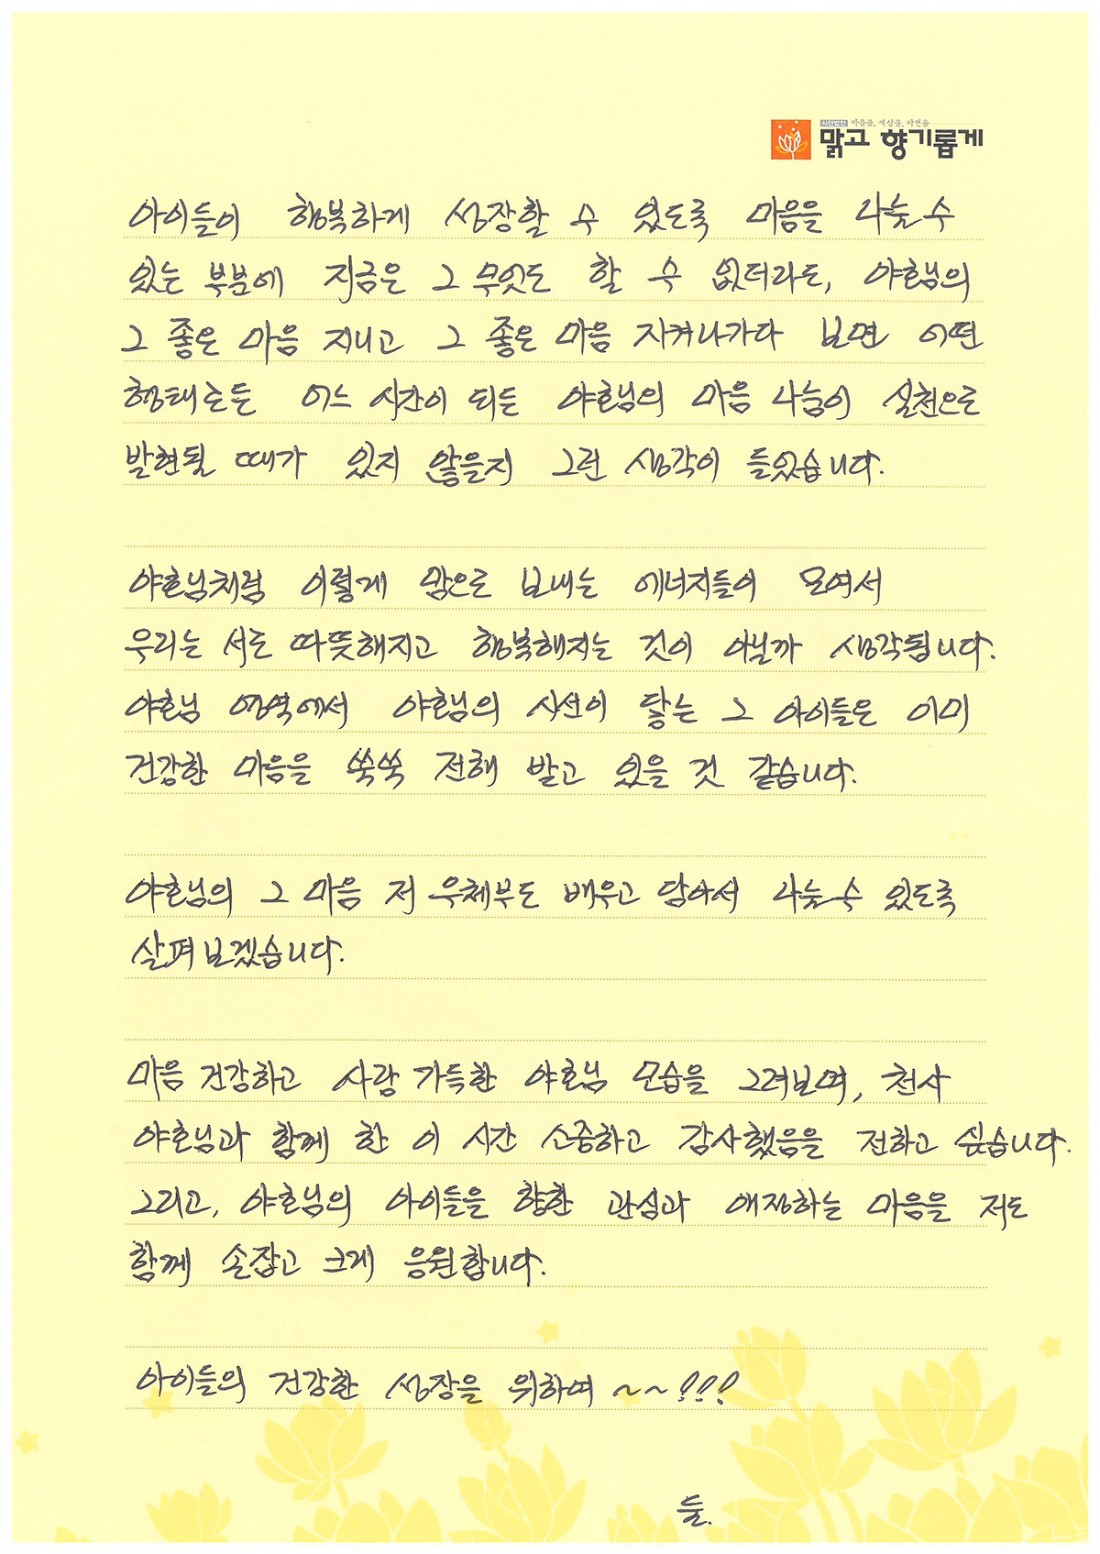 사단법인 마음을, 세상을, 자연을
맑고 향기롭게
아이들이 행복하게 성장할 수 있도록 마음을 나눌 수
있는 부분에 지금은 그 무엇도 할 수 없더라도, 야호님의
그 좋은 마음 지니고 그 좋은 마음 지켜나가다 보면 어떤
형태로든 어느 시간이 되든 야호님의 마음 나눔이 실천으로
발현될 때가 있지 않을지 그런 생각이 들었습니다.
야호님처럼 이렇게 맘으로 보내는 에너지들이 모여서
우리는 서로 따뜻해지고 행복해지는 것이 아닐까 생각됩니다.
야호님 영역에서 야호님의 시선이 닿는 그 아이들은 이미
건강한 마음을 쑥쑥 전해 받고 있을 것 같습니다.
야호님의 그 마음 저 우체부도 배우고 담아서 나눌 수 있도록
살펴보겠습니다.
마음 건강하고 사랑 가득한 야호님 모습을 그려보며, 천사
야호님과 함께 한 이 시간 소중하고 감사했음을 전하고 싶습니다.
그리고, 야호님의 아이들을 향한 관심과 애정하는 마음을 저도
함께 손잡고 크게 응원합니다.
아이들의 건강한 성장을 위하여 ~~!!!